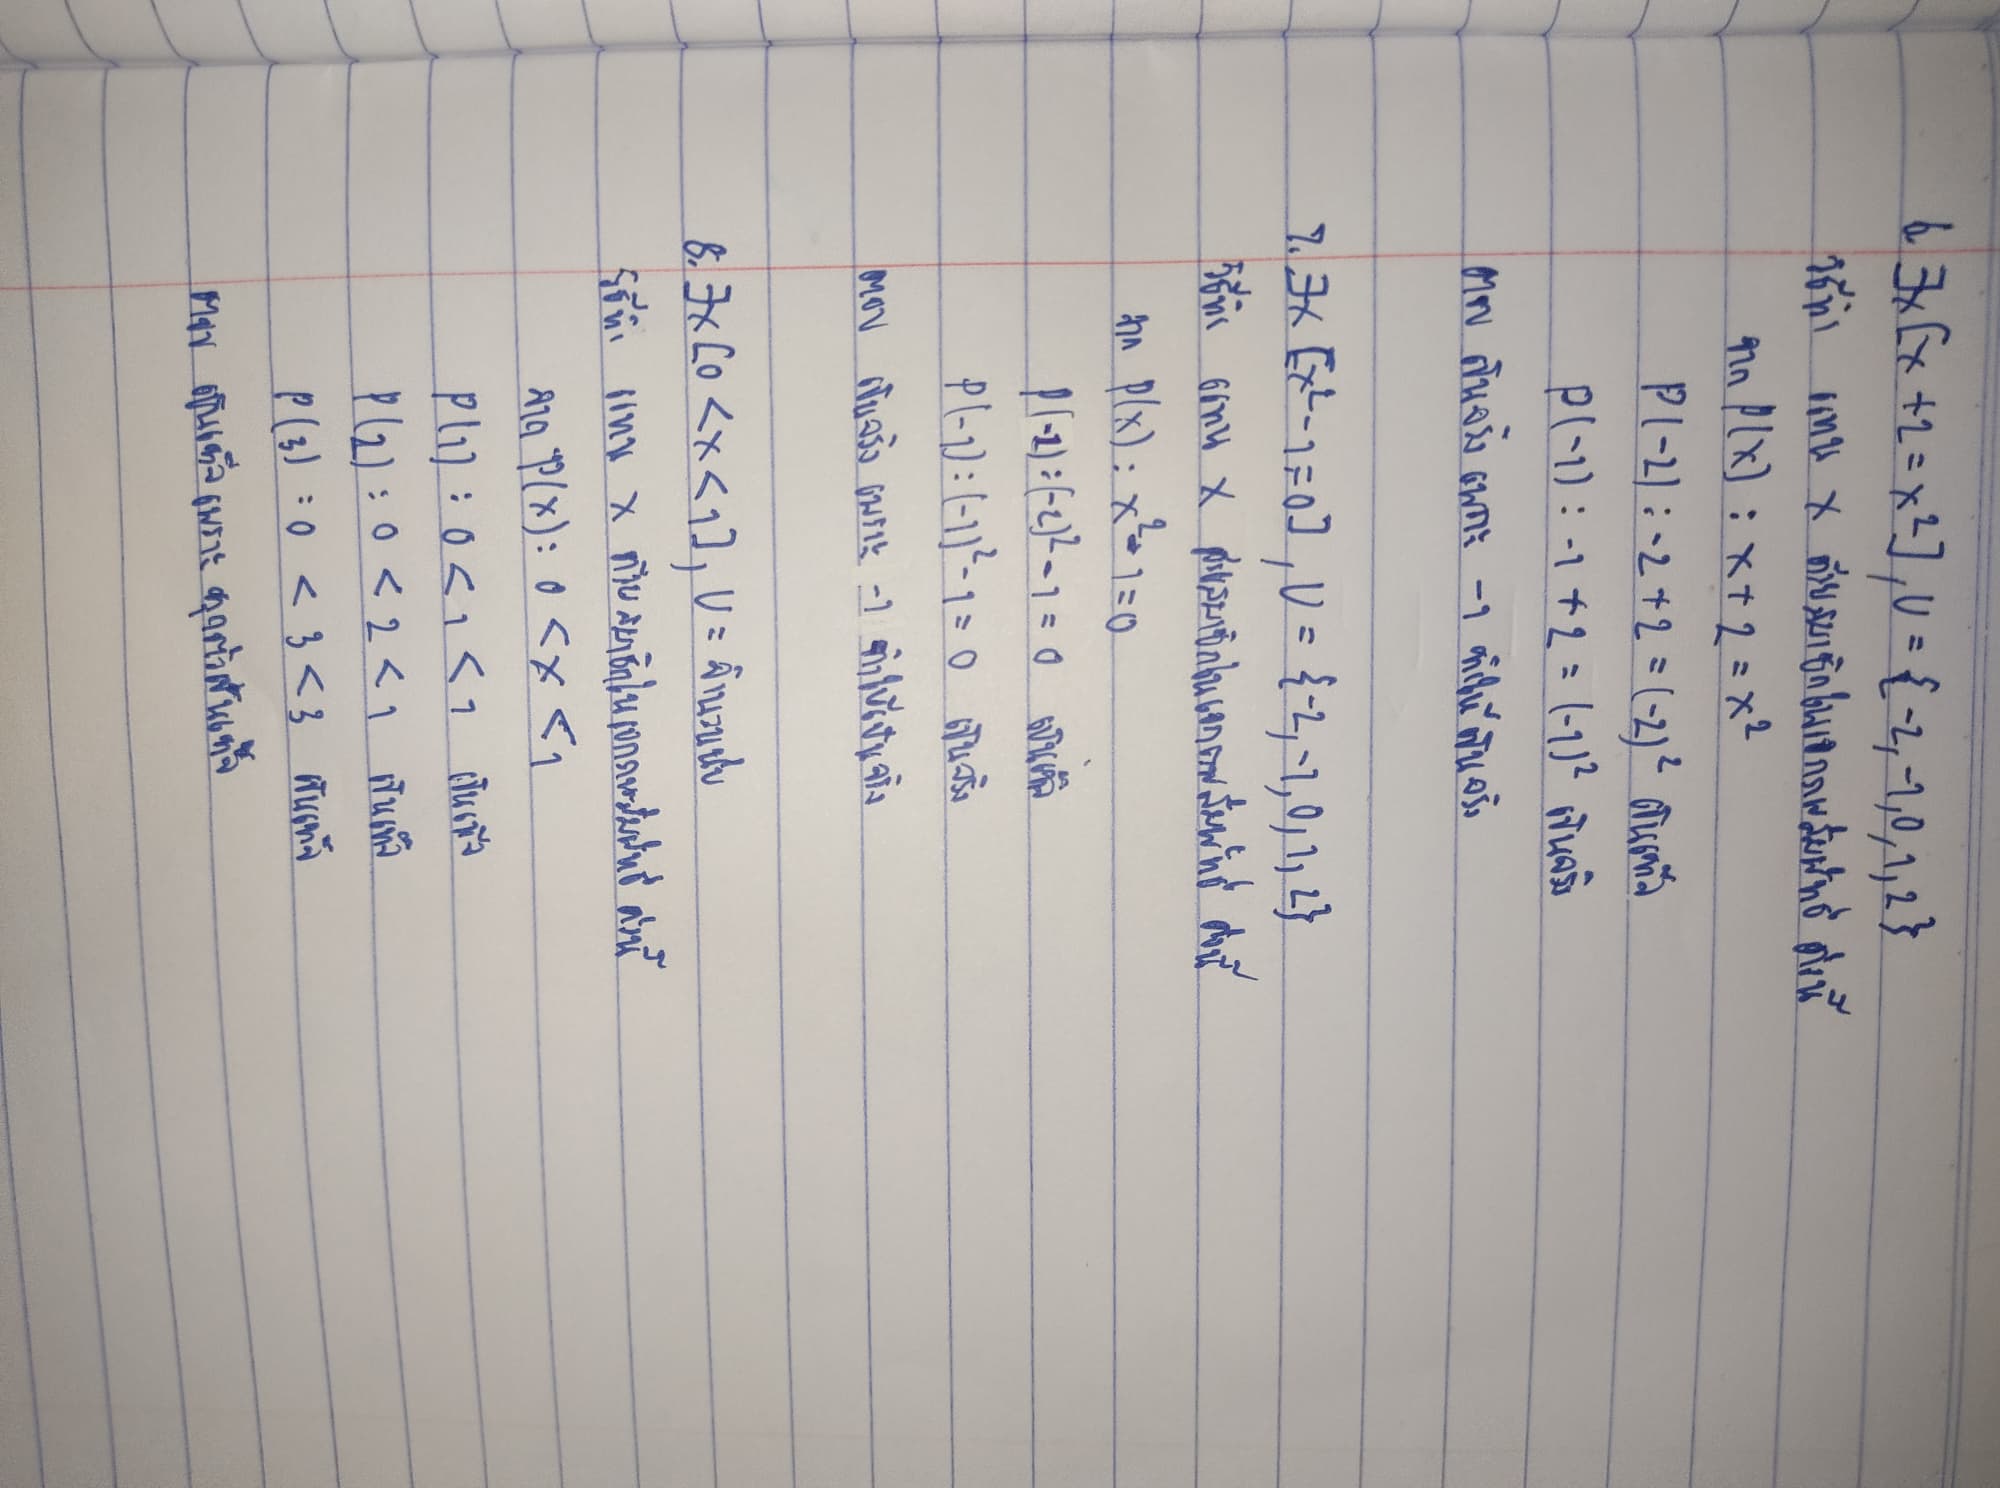 6. ∃x[x+2=x²], U = {-2,-1,0,1,2}
วิธีทำ แทน x ด้วยสมาชิกในเอกภพสัมพัทธ์ ดังนี้
จาก P(x) : x+2 = x²
P(-2) : -2+2 = (-2)² เป็นเท็จ
P(-1) : -1+2 = (-1)² เป็นจริง
ตอบ เป็นจริง เพราะ -1 ทำให้เป็นจริง
7. ∃x [x²-1=0], U = {-2,-1,0,1,2}
วิธีทำ แทน x ด้วยสมาชิกในเอกภพสัมพัทธ์ ดังนี้
จาก P(x) : x²-1=0
P(-2) : (-2)²-1 = 0 เป็นเท็จ
P(-1) : (-1)²-1 = 0 เป็นจริง
ตอบ เป็นจริง เพราะ -1 ทำให้เป็นจริง
8. ∃x[0<x<1], U = จำนวนนับ
วิธีทำ แทน x ด้วยสมาชิกในเอกภพสัมพัทธ์ ดังนี้
จาก P(x) : 0 < x < 1
P(1) : 0 < 1 < 1 เป็นเท็จ
P(2) : 0 < 2 < 1 เป็นเท็จ
P(3) : 0 < 3 < 3 เป็นเท็จ
ตอบ เป็นเท็จ เพราะ ทุกตัวเป็นเท็จ